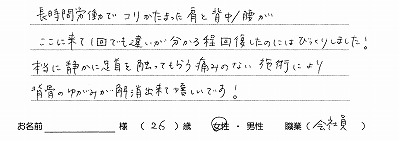 長時間労働でコリかたまった肩と背中/腰が
ここに来て1回でも違いが分かる程回復したのにはびっくりしました!
本当に静かに足首を触ってもらう痛みのない施術により
背骨のゆがみが解消出来て嬉しいです!
お名前 様 (26)歳 女性・男性 職業(会社員)